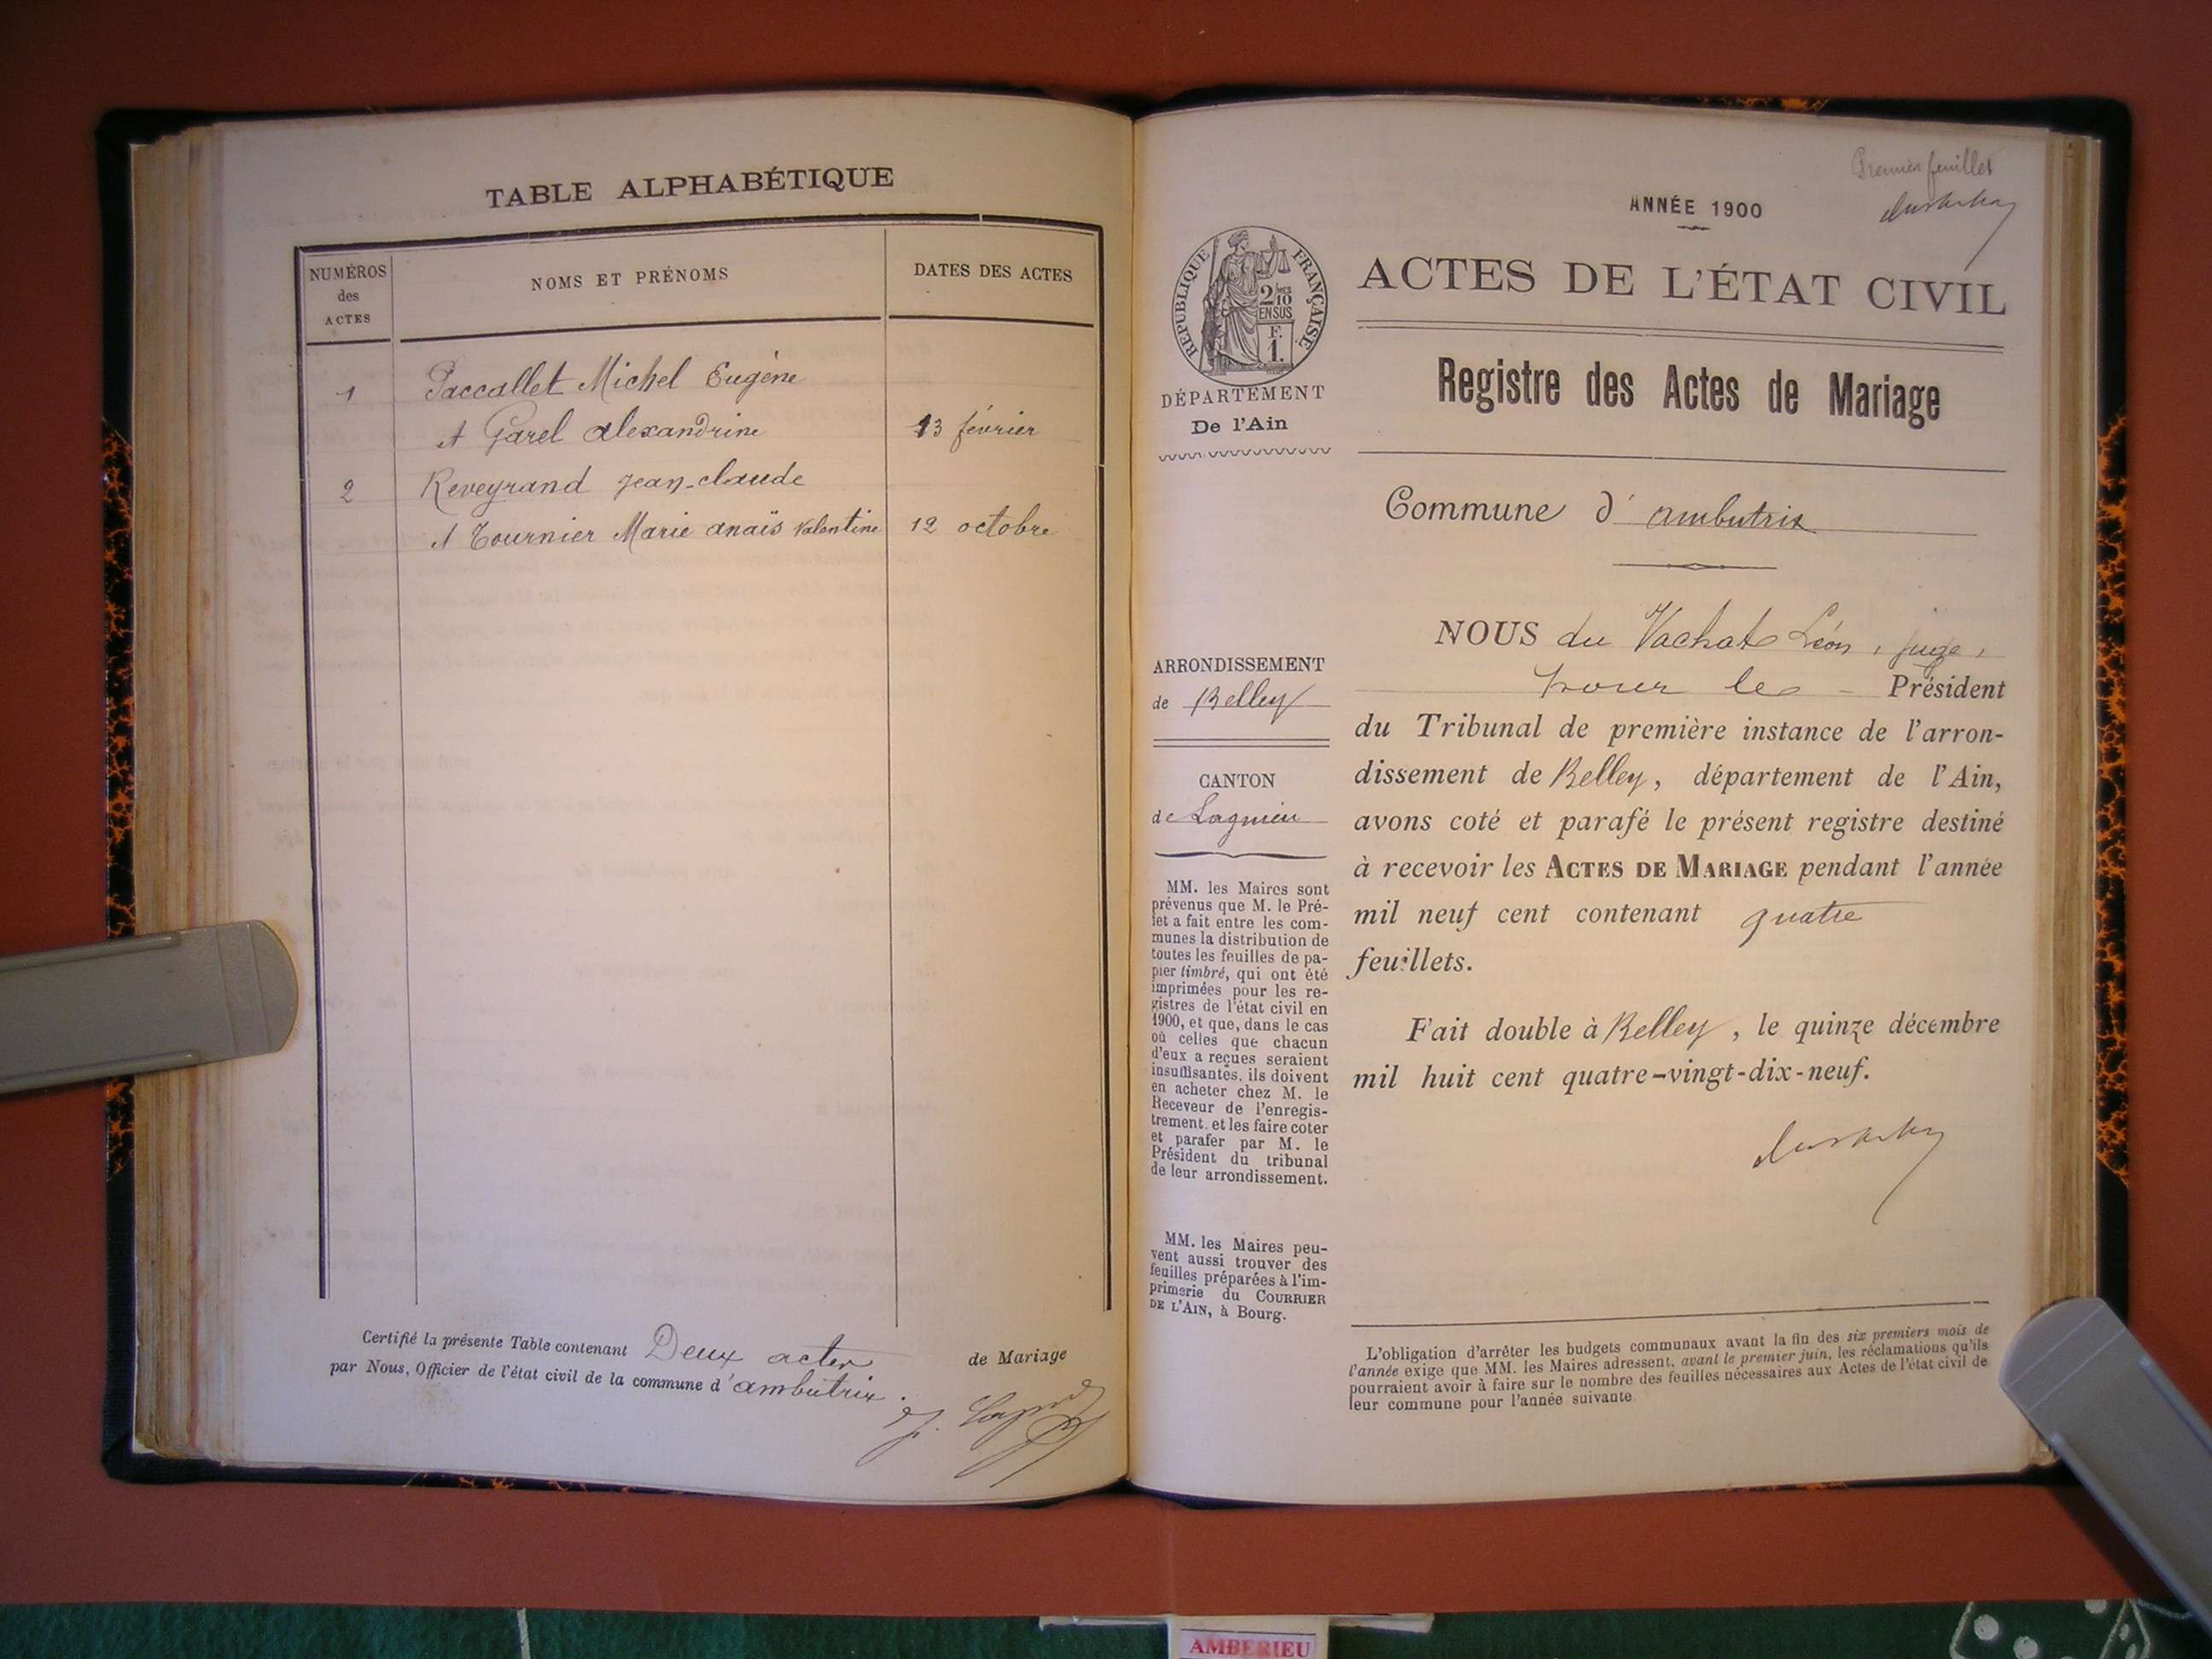 TABLE ALPHABÉTIQUE
NUMÉROS
des
ACTES
NOMS ET PRÉNOMS
DATES DES ACTES
1
Paccallet Michel Eugène
et Garel alexandrine
13 février
2
Reveyrand jean-claude
et Tournier Marie anaïs Valentine
12 octobre
Certifié la présente Table contenant Deux actes de Mariage
par Nous, Officier de l'état civil de la commune d'ambutrix.
Premier feuillet
ANNÉE 1900
RÉPUBLIQUE FRANÇAISE
2/10
EN SUS
F.
1.
DÉPARTEMENT
De l'Ain
ACTES DE L'ÉTAT CIVIL
Registre des Actes de Mariage
Commune d'ambutrix
ARRONDISSEMENT
de Belley
CANTON
de Lagnieu
MM. les Maires sont
prévenus que M. le Pré-
fet a fait entre les com-
munes la distribution de
toutes les feuilles de pa-
pier timbré, qui ont été
imprimées pour les re-
gistres de l'état civil en
1900, et que, dans le cas
où celles que chacun
d'eux a reçues seraient
insuffisantes, ils doivent
en acheter chez M. le
Receveur de l'enregis-
trement, et les faire coter
et parafer par M. le
Président du tribunal
de leur arrondissement.
MM. les Maires peu-
vent aussi trouver des
feuilles préparées à l'im-
primerie du COURRIER
DE L'AIN, à Bourg.
NOUS du Vachat Léon, juge,
pour le Président
du Tribunal de première instance de l'arron-
dissement de Belley, département de l'Ain,
avons coté et parafé le présent registre destiné
à recevoir les ACTES DE MARIAGE pendant l'année
mil neuf cent contenant quatre
feuillets.
Fait double à Belley, le quinze décembre
mil huit cent quatre-vingt-dix-neuf.
L'obligation d'arrêter les budgets communaux avant la fin des six premiers mois de
l'année exige que MM. les Maires adressent, avant le premier juin, les réclamations qu'ils
pourraient avoir à faire sur le nombre des feuilles nécessaires aux Actes de l'état civil de
leur commune pour l'année suivante.
AMBERIEU